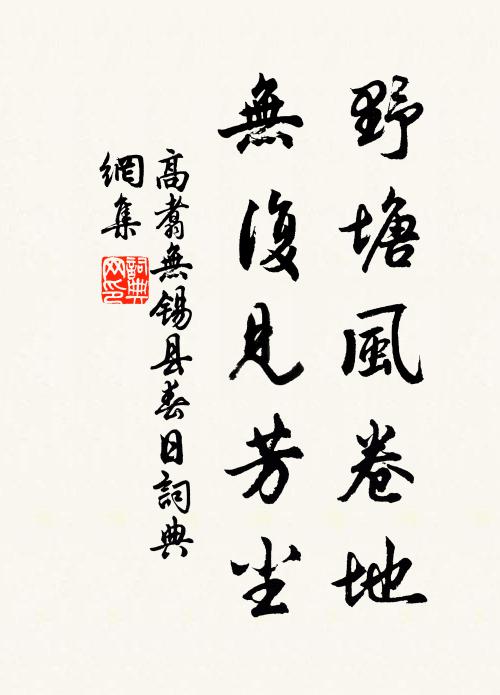 野塘風卷地
無復見芳尘
高翥無錫县春日詞典
網集
詞典
网印